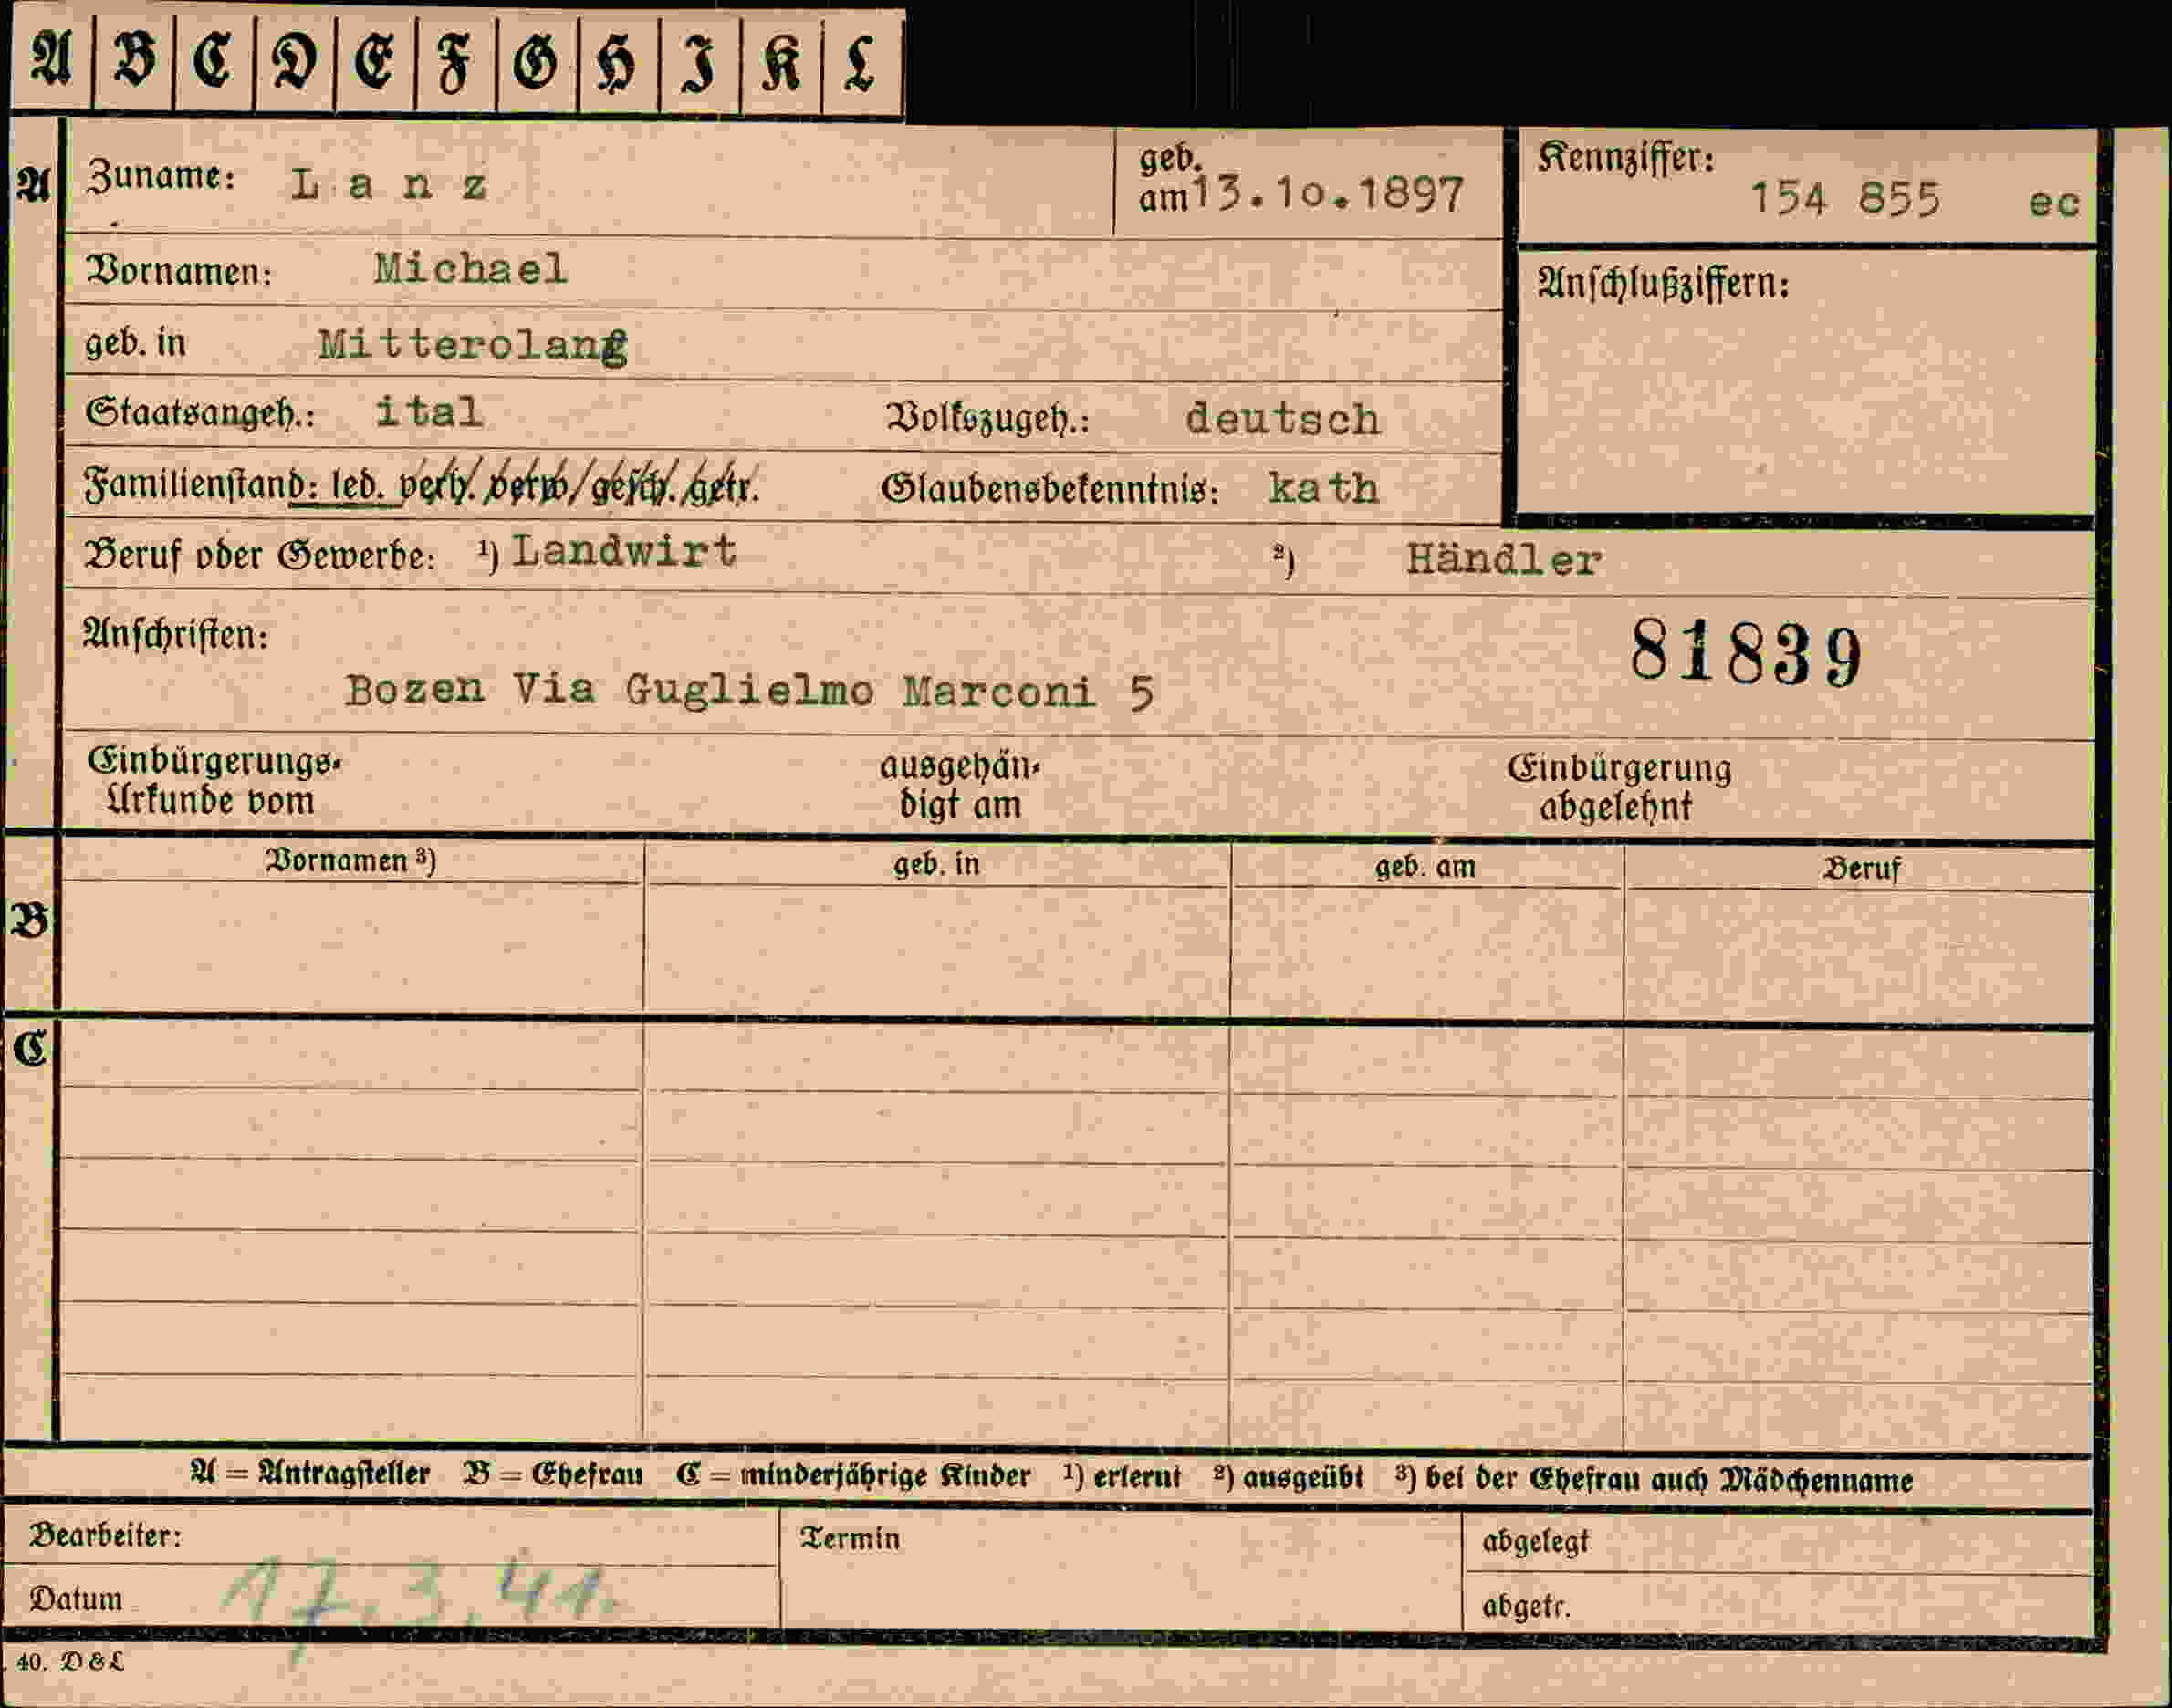 A B C D E F G H I K L
A Zuname: Lanz geb. am 13.10.1897 Kennziffer: 154 855 ec
Vornamen: Michael Anschlußziffern:
geb. in Mitterolang
Staatsangeh.: ital Volkszugeh.: deutsch
Familienstand: led. verh. verw. gesch. getr. Glaubensbekenntnis: kath
Beruf oder Gewerbe: ¹) Landwirt ²) Händler
Anschriften: 81839
Bozen Via Guglielmo Marconi 5
Einbürgerungs- ausgehän- Einbürgerung
Urkunde vom digt am abgelehnt
Vornamen ³) geb. in geb. am Beruf
B
C
A = Antragsteller B = Ehefrau C = minderjährige Kinder ¹) erlernt ²) ausgeübt ³) bei der Ehefrau auch Mädchenname
Bearbeiter: Termin abgelegt
Datum 17.3.41. abgetr.
40. D & L